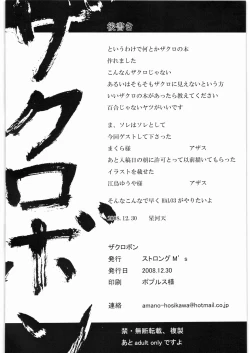 ザクロボン
後書き
というわけで何とかザクロの本
作れました
こんなんザクロじゃない
あるいはそもそもザクロに見えないという方
いいザクロの本があったら教えてください
百合じゃないヤツがいいです
ま、ソレはソレとして
今回ゲストして下さった
まくら様　アザス
あと入稿日の朝に許可とって以前描いてもらった
イラストを載せた
江島ゆうや様　アザス
そんなこんなで早く
がやりたいよ
2008.12.30　星河天
ザクロボン
発行　ストロングM's
発行日　2008.12.30
印刷　ポプルス様
連絡　amano-hosikawa@hotmail.co.jp
禁・無断転載、複製
あと adult only ですよ